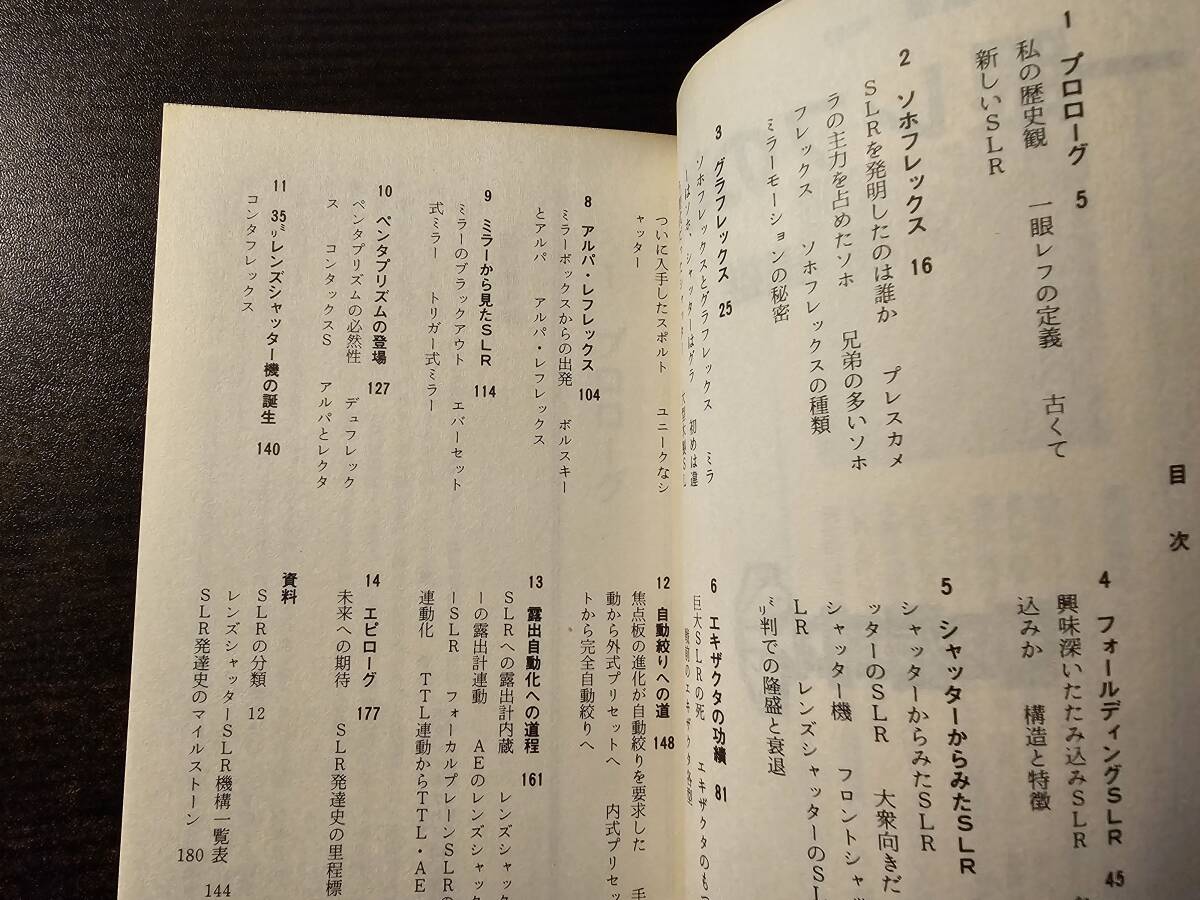 目次
1 プロローグ 5
私の歴史観 一眼レフの定義 古くて
新しいSLR
2 ソホフレックス 16
SLRを発明したのは誰か プレスカメ
ラの主力を占めたソホ 兄弟の多いソホ
フレックス ソホフレックスの種類
ミラーモーションの秘密
3 グラフレックス 25
ソホフレックスとグラフレックス ミラ
ーはソホ、シャッターはグラ 初めは違
4 フォールディングSLR 45
興味深いたたみ込みSLR
込みか 構造と特徴
5 シャッターからみたSLR
シャッターからみたSLR
ッターのSLR 大衆向きだ
シャッター機 フロントシャッ
LR レンズシャッターのSL
㍉判での隆盛と衰退
6 エキザクタの功績 81
巨大SLRの死 エキザクタのもつ
ついに入手したスポルト ユニークなシ
ャッター
8 アルパ・レフレックス 104
ミラーボックスからの出発 ボルスキー
とアルパ アルパ・レフレックス
9 ミラーから見たSLR 114
ミラーのブラックアウト エバーセット
式ミラー トリガー式ミラー
10 ペンタプリズムの登場 127
ペンタプリズムの必然性 デュフレック
ス コンタックスS アルパとレクタ
11 35㍉レンズシャッター機の誕生 140
コンタフレックス
12 自動絞りへの道 148
焦点板の進化が自動絞りを要求した 手
動から外式プリセットへ 内式プリセッ
トから完全自動絞りへ
13 露出自動化への道程 161
SLRへの露出計内蔵 レンズシャッタ
ーの露出計連動 AEのレンズシャッタ
ーSLR フォーカルプレーンSLRの
連動化 TTL連動からTTL・AE
14 エピローグ 177
未来への期待 SLR発達史の里程標
資料
SLRの分類 12
レンズシャッターSLR機構一覧表 144
SLR発達史のマイルストーン 180